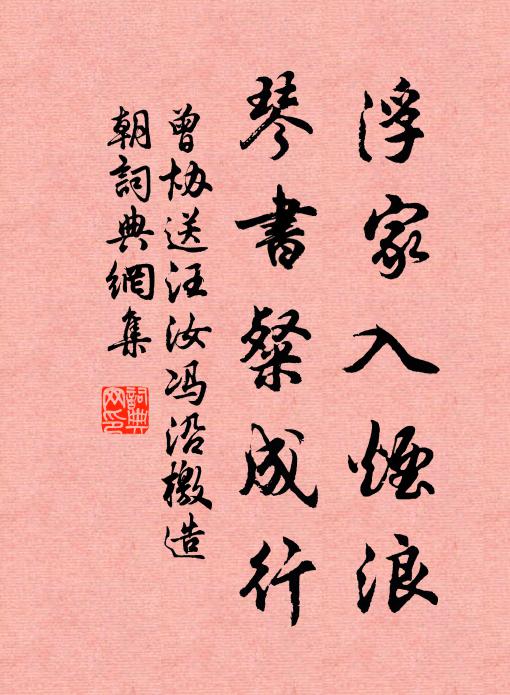 浮家入煙浪
琴書粲成行
曾協送汪汝馮沿檄造
朝詞典網集
詞典網印